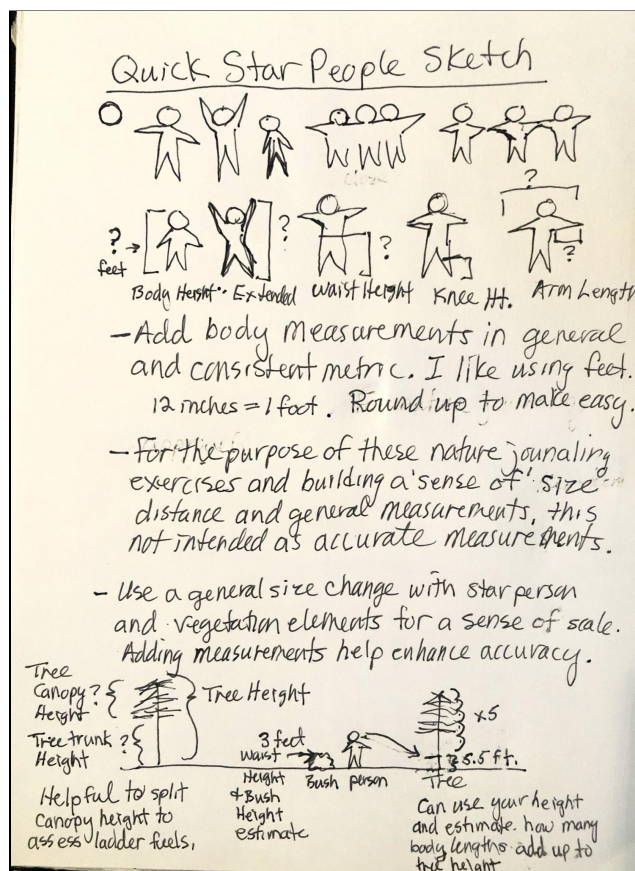 Quick Star People Sketch
close
?
? feet →
?
?
?
Body Height
Extended
Waist Height
Knee Ht.
Arm Length
- Add body measurements in general
and consistent metric. I like using feet.
12 inches = 1 foot. Round up to make easy.
- For the purpose of these nature jounaling
exercises and building a 'sense of' size
distance and general measurements, this
not intended as accurate measurements.
- Use a general size change with star person
and vegetation elements for a sense of scale.
Adding measurements help enhance accuracy.
Tree
Canopy ?
Height
Tree Height
Tree trunk ?
Height
Helpful to split
canopy height to
assess ladder fuels,
3 feet
waist
Height
& Bush
Height
estimate
Bush
person
x5
5.5 ft.
Tree
Can use your height
and estimate. how many
body lengths add up to
tree height